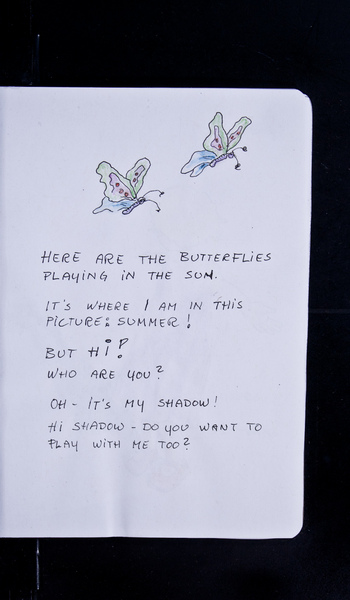 HERE ARE THE BUTTERFLIES
PLAYING IN THE SUN.
IT'S WHERE I AM IN THIS
PICTURE: SUMMER!
BUT HI!?
WHO ARE YOU?
OH - IT'S MY SHADOW!
HI SHADOW - DO YOU WANT TO
PLAY WITH ME TOO?